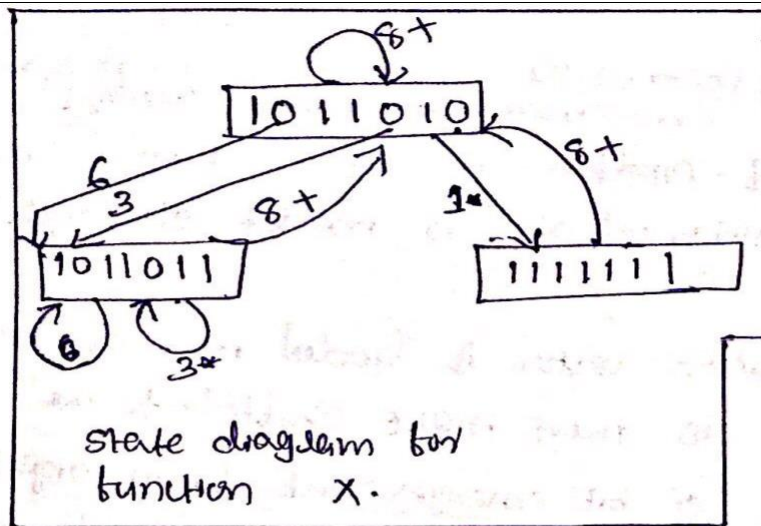 8+
1011010
6
3
8+
1*
8+
1011011
1111111
6
3*
state diagram for
function X.